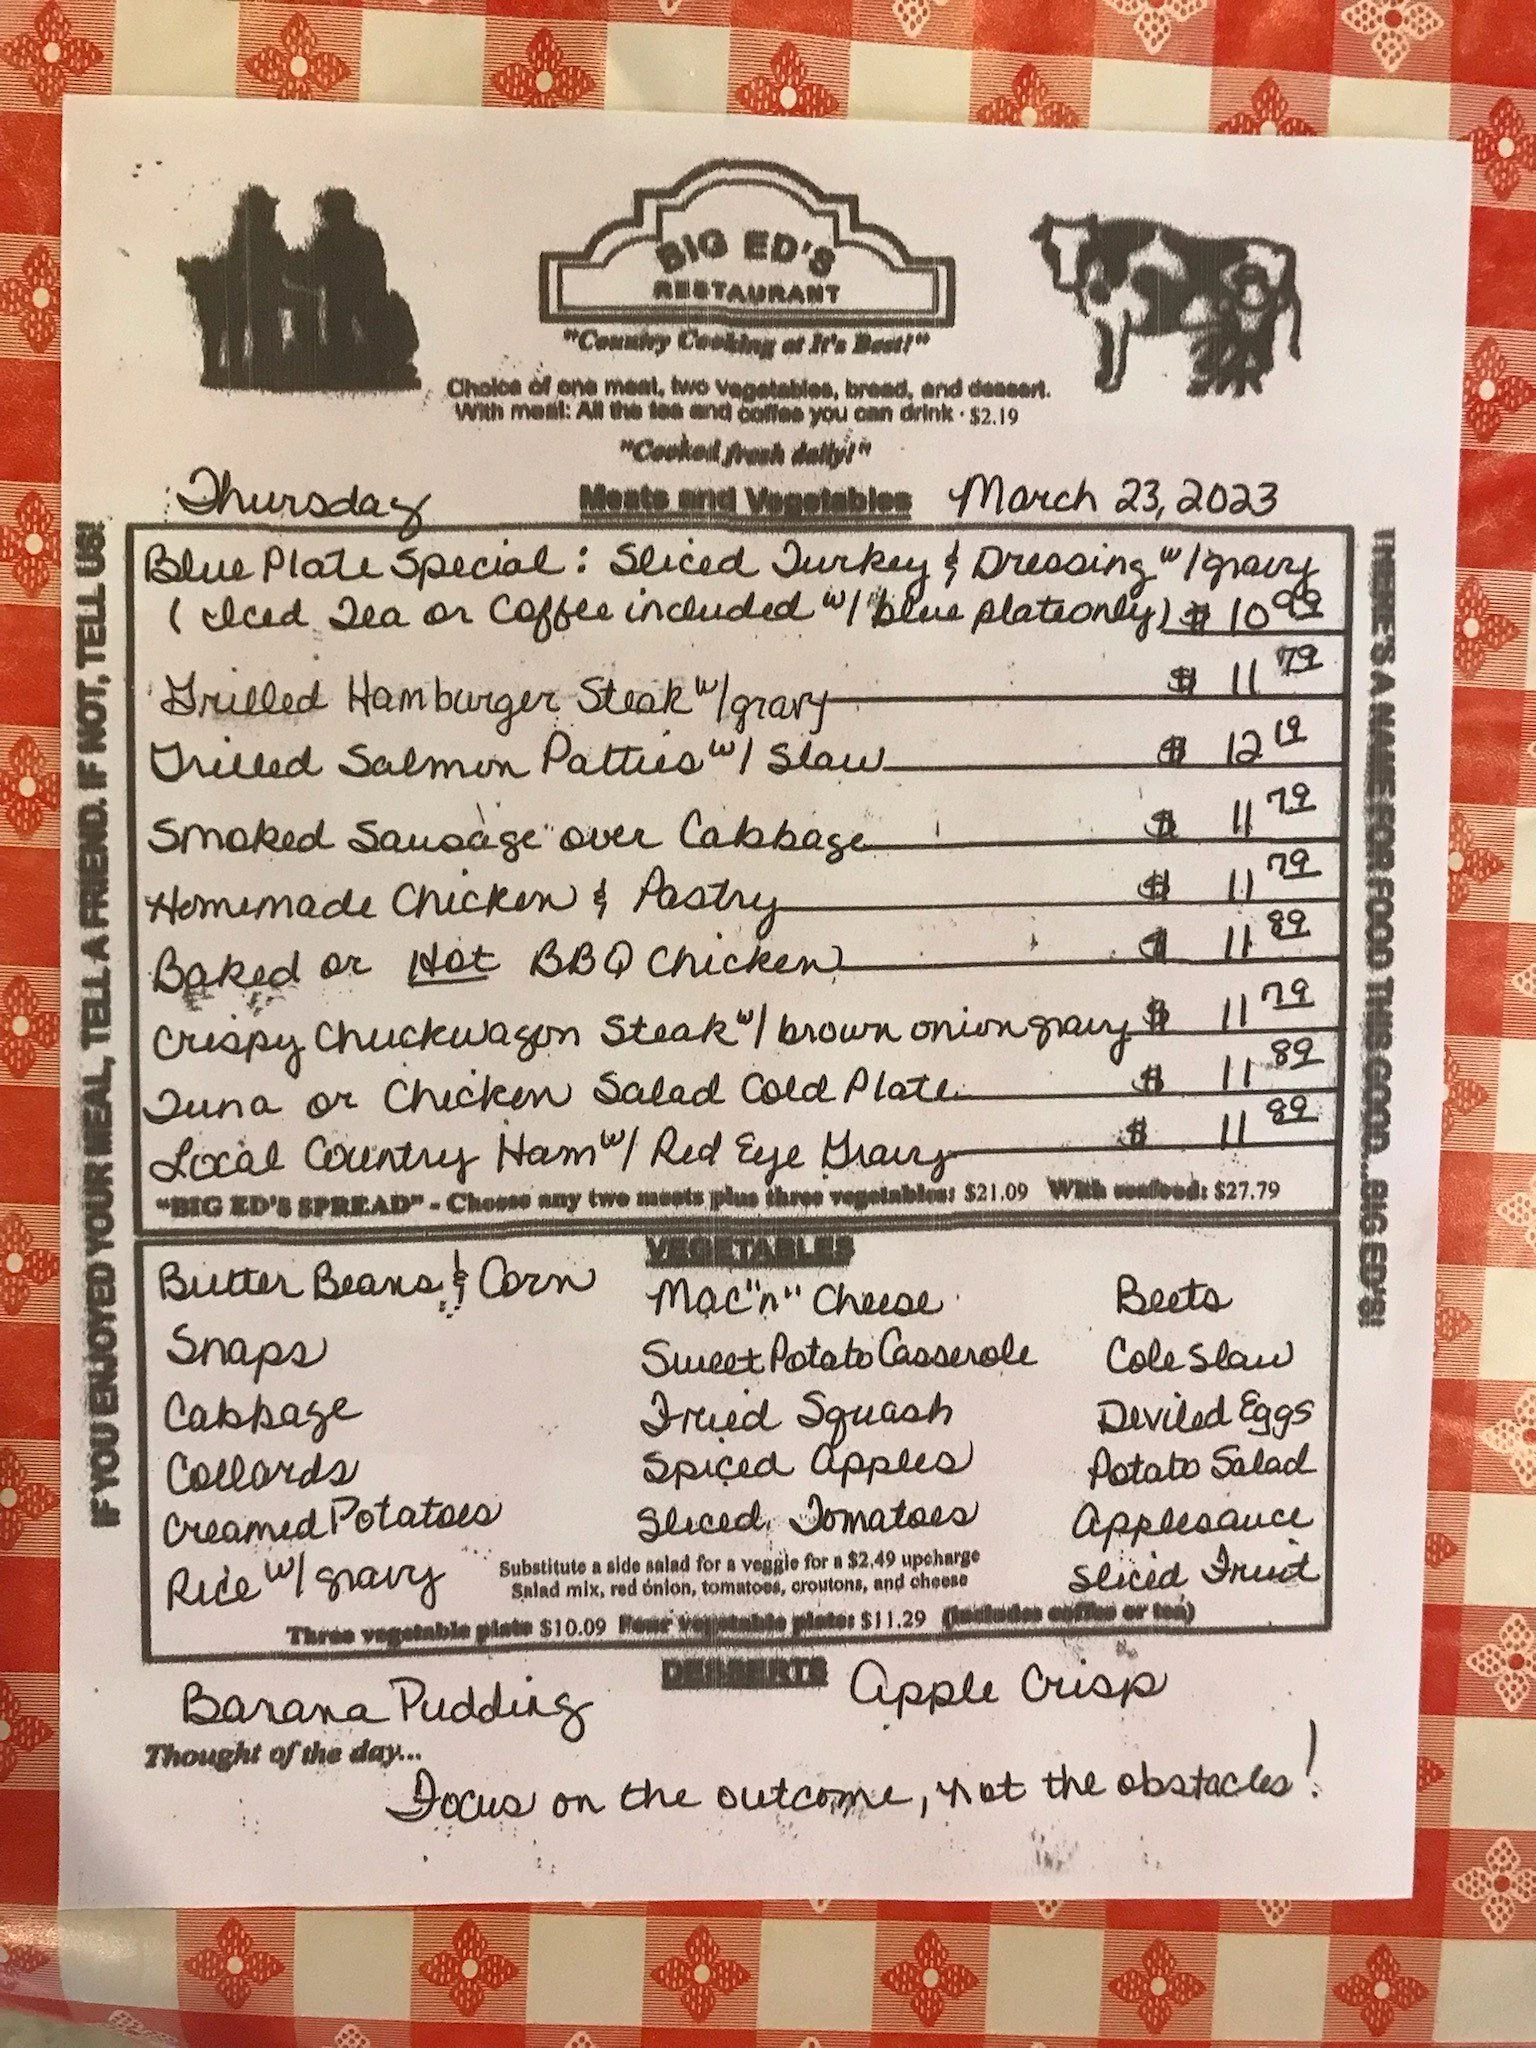 BIG ED'S
RESTAURANT
"Country Cooking at It's Best!"
Choice of one meat, two vegetables, bread, and dessert.
With meal: All the tea and coffee you can drink · $2.19
"Cooked fresh daily!"
Thursday Meats and Vegetables March 23, 2023
IF YOU ENJOYED YOUR MEAL, TELL A FRIEND. IF NOT, TELL US!
Blue Plate Special: Sliced Turkey & Dressing w/gravy
(Iced Tea or Coffee included w/ blue plate only) $ 10 99
Grilled Hamburger Steak w/gravy $ 11 79
Grilled Salmon Patties w/ Slaw $ 12 19
Smoked Sausage over Cabbage $ 11 79
Homemade Chicken & Pastry $ 11 79
Baked or Hot BBQ Chicken $ 11 89
Crispy Chuckwagon Steak w/ brown onion gravy $ 11 79
Tuna or Chicken Salad Cold Plate $ 11 89
Local Country Ham w/ Red Eye Gravy $ 11 89
"BIG ED'S SPREAD" - Choose any two meats plus three vegetables: $21.09 With seafood: $27.79
THERE'S A NAME FOR FOOD THIS GOOD...BIG ED'S!
VEGETABLES
Butter Beans & Corn Mac"n" Cheese Beets
Snaps Sweet Potato Casserole Cole Slaw
Cabbage Fried Squash Deviled Eggs
Collards Spiced Apples Potato Salad
Creamed Potatoes Sliced Tomatoes Applesauce
Rice w/ gravy Sliced Fruit
Substitute a side salad for a veggie for a $2.49 upcharge
Salad mix, red onion, tomatoes, croutons, and cheese
Three vegetable plate $10.09 Four vegetable plate: $11.29 (includes coffee or tea)
DESSERTS
Banana Pudding Apple Crisp
Thought of the day...
Focus on the outcome, not the obstacles!